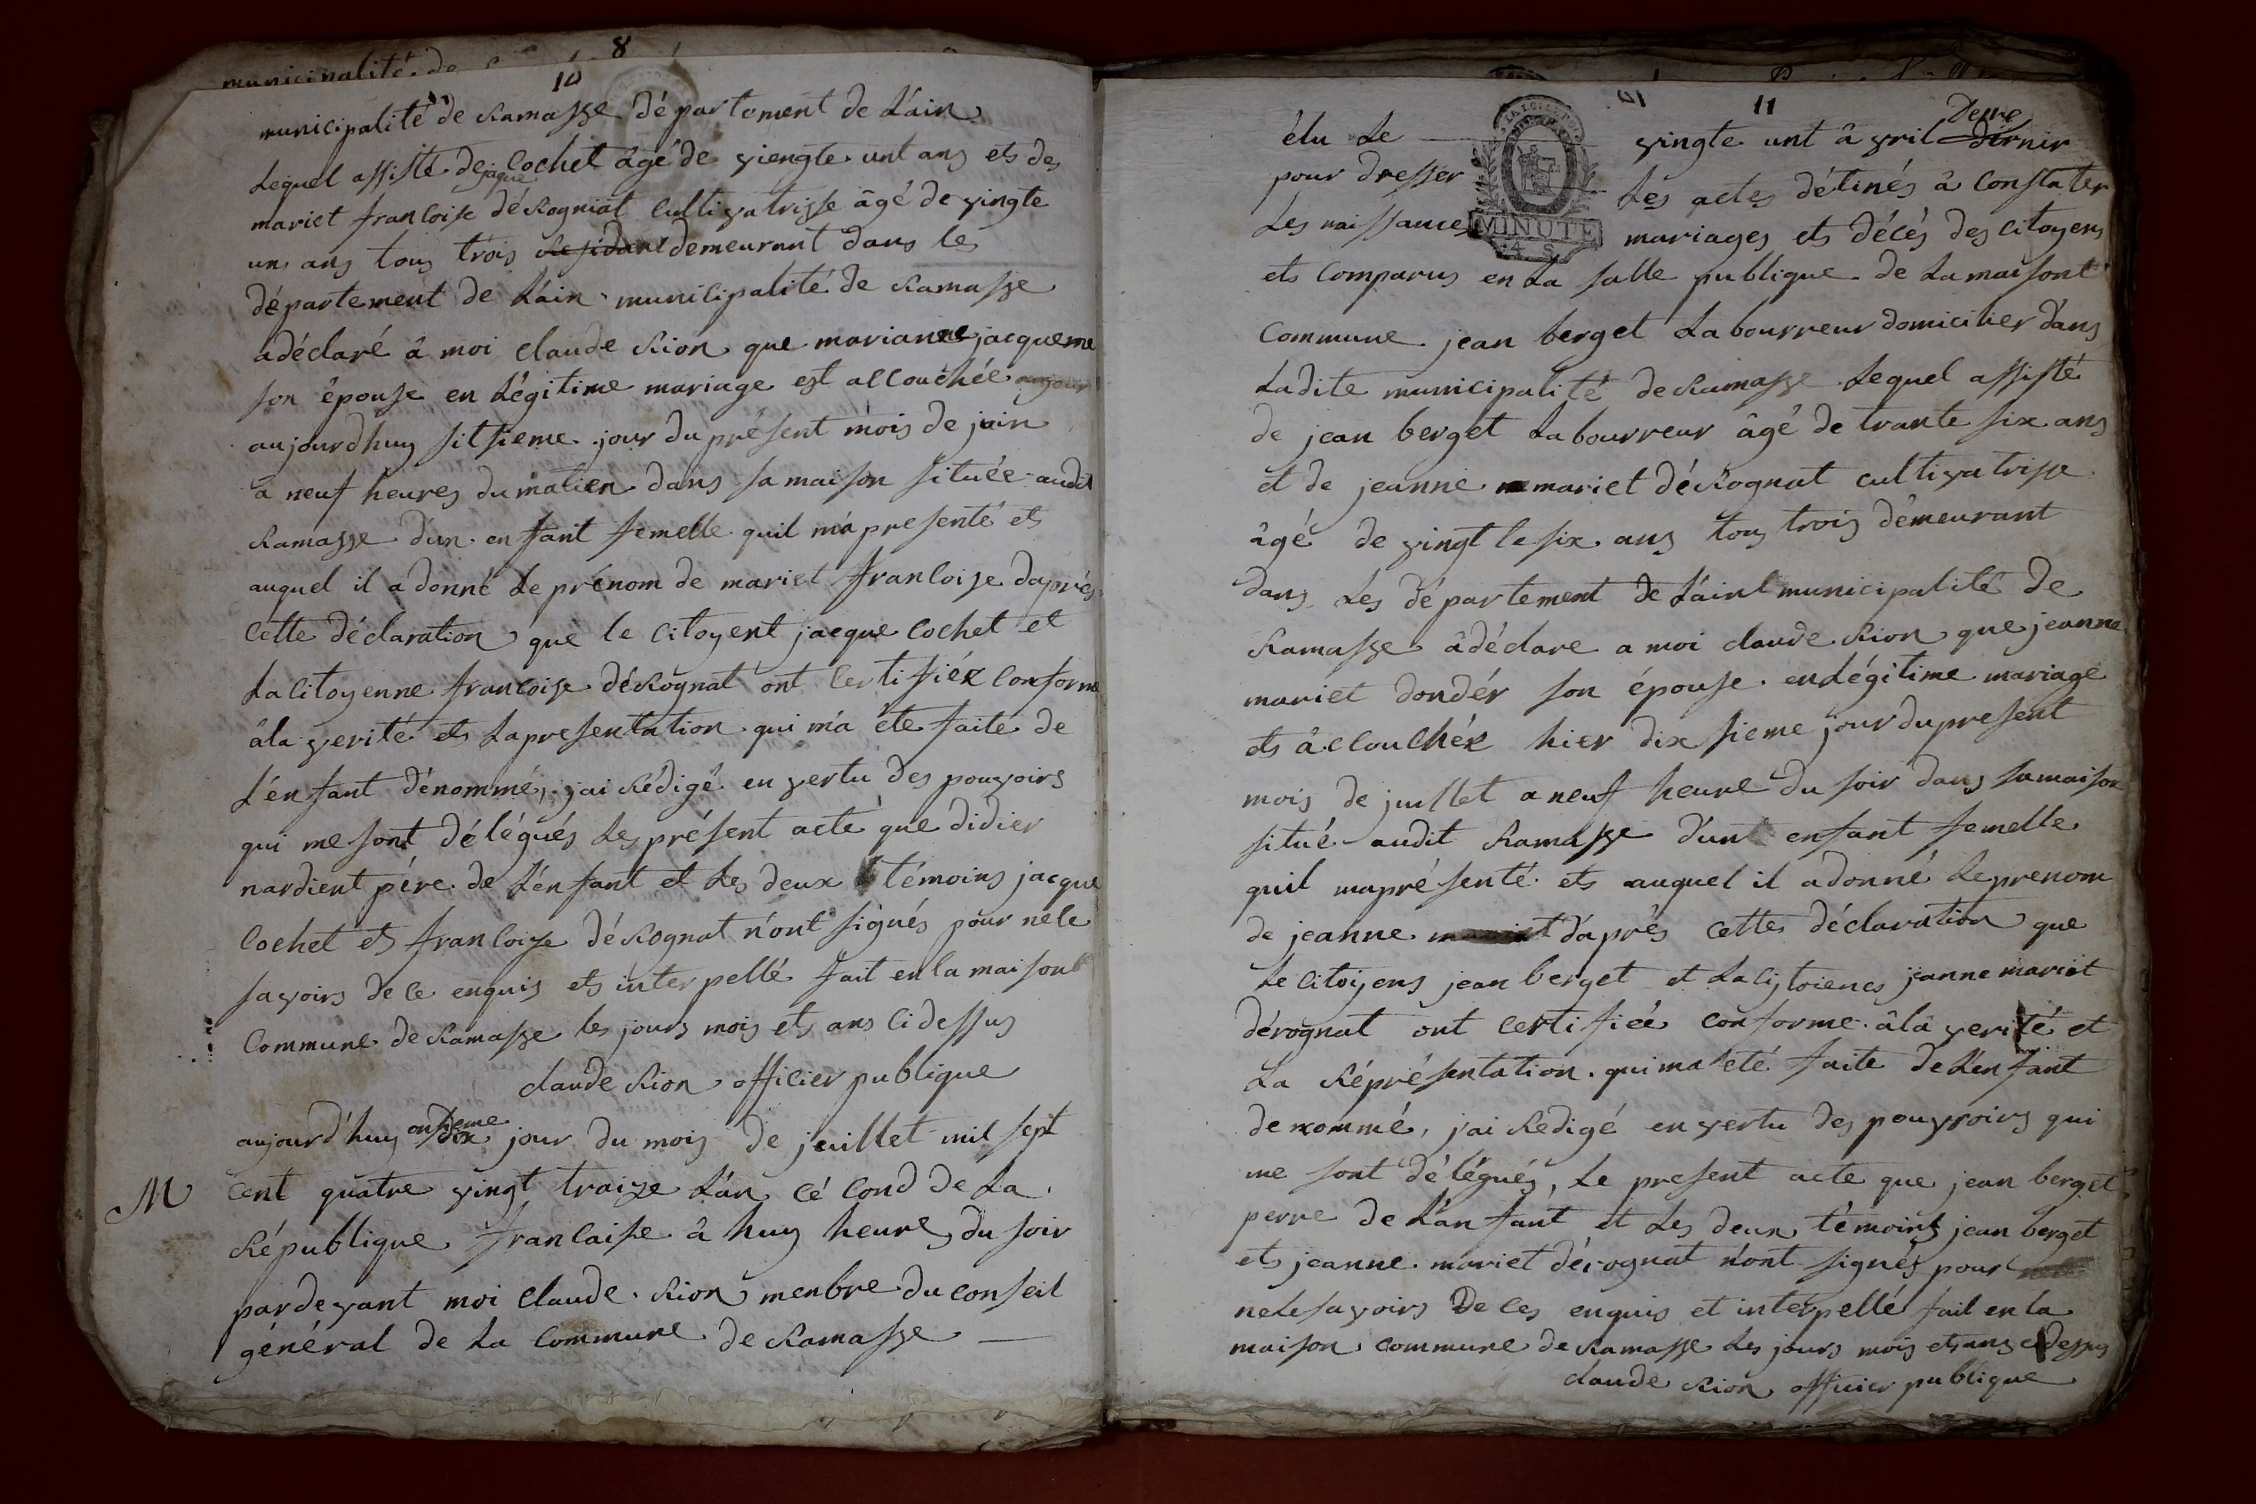 8
municipalité de
10
municipalité de Ramasse département de Láin
Lequel assisté de jaque Cochet âgé de viengte unt ans ets des
mariet francoise déRognat Cultivatrisse âgé de vingte
uns ans tous trois Residant demeurant dans les
département de Láin municipalité de Ramasse
adéclaré â moi claude Rion que marianne jacqueme
son épouse en Légitime mariage est allouchée
aujourdhuy sitsieme jour du présent mois de juin
a neuf heures du matien dans sa maison située audit
Ramasse d'un enfant femelle quil m'a presenté ets
auquel il a donné Le prénom de mariet francoise daprés
Cette déclaration que le Citoyent jacque Cochet et
La Citoyenne francoise déRognat ont Certifiéz Conforme
âla verité ets Lapresentation qui m'a éte faite de
L'énfant dénommé, j'ai Rédigé en vertu des pouvoirs
qui me sont délégués Les présent acte que didier
nardient pére de L'énfant et Les deux témoins jacque
Cochet ets francoise déRognat n'ont signés pour nele
savoirs de Ce enquis ets interpellé fait en la maisont
Commune de Ramasse les jours mois ets ans Cidessus
claude Rion officier publique
aujourd'huy dix onsieme jour du mois de juillet mil sept
M
Cent quatre vingt traize L'án Cé Cond de La
République francaise â huy heures du soir
pardevant moi Claude Rion menbre du Conseil
général de La Commune de Ramasse
11
élu Le vingte unt â vril dernir Derre
pour dresser Les actes détinés â Constater
Les naissances mariages ets décés des citoyens
MINUTE
4 S
ets Comparus en La salle publique de La maisont
Commune jean berget Labourreur domicilier dans
Ladite municipalité de Ramasse Lequel assisté
de jean berget Labourreur âgé de trante six ans
et de jeanne mariet déRognat cultivatrise
âgé de vingt le six ans tous trois démeurant
dans Lés département de Láint municipalité de
Ramasse âdéclare a moi claude Rion que jeanne
mariet dondér son épouse en Légitime mariage
ets âcloulhéz hier dix sieme jour dupresent
mois de juillet a neuf heure du soir dans samaison
situé audit Ramasse d'unt enfant femelle
quil mapré senté ets auquel il a donné Leprenom
de jeanne mariet d'aprés Cette déclaration que
Le Citoyens jean berget et Lacijtoienes jeanne mariet
dérognat ont Certifiée Conforme âla verité et
La Répré sentation qui ma eté faite de L'énfant
denommé, j'ai Redigé en vertu des pouvroirs qui
me sont délégués, Le present acte que jean berget
perre de L'ánfant et Les deux témoints jean berget
ets jeanne mariet dérognat n'ont signés pour
neLesavoirs De Ces enquis et interpellé fait en La
maison Commune de Ramasse Les jours mois ets ans cidessus
claude Rion officier publique